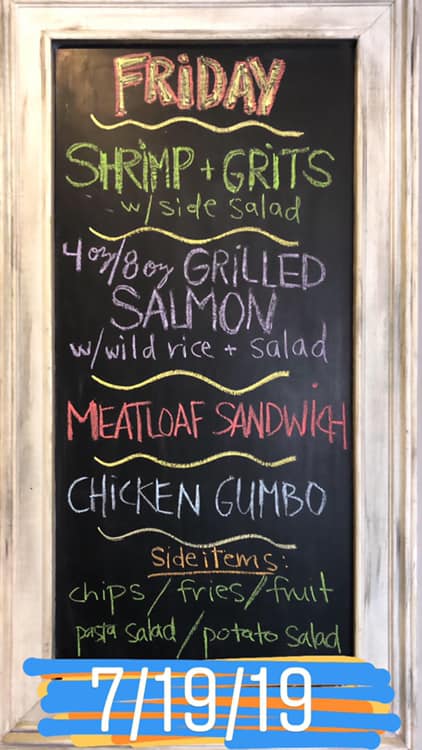 FRiDAY
SHRiMP + GRiTS
w/ side salad
4 oz/8 oz GRiLLED
SALMON
w/wild rice + salad
MEATLOAF SANDWiCH
CHiCKEN GUMBO
Side items:
chips / fries / fruit
pasta salad / potato salad
7/19/19